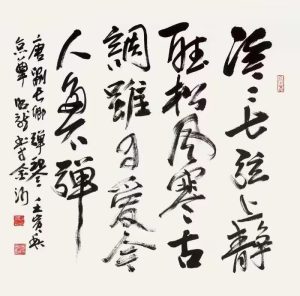 泠〻七弦上靜
聽松風寒古
調雖自愛今
人多不彈
唐劉長卿彈琴 壬寅